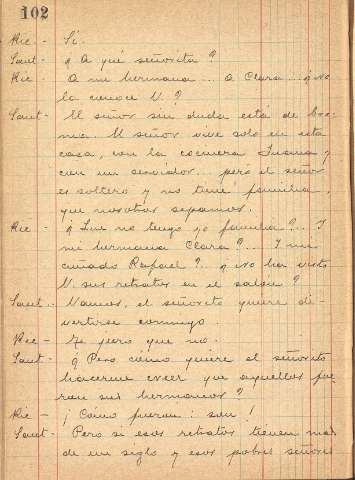 102
Ric.- Sí.
Sant- ¿A qué señorita?
Ric- A mi hermana... A Clara... ¿No
la conoce V.?
Sant- El señor sin duda está de bro-
ma. El señor vive solo en esta
casa, con la cocinera Jusma y
con un servidor... pero el señor
es soltero y no tiene familia,
que nosotros sepamos.
Ric- ¿Que no tengo yo familia?.. Y
mi hermana Clara?... Y mi
cuñado Rafael?.. ¿No ha visto
V. sus retratos en el salón?
Sant- Vamos, el señorito quiere di-
vertirse conmigo.
Ric- Te juro que no.
Sant- ¿Pero cómo quiere el señorito
hacerme creer que aquellos fue-
ran sus hermanos?
Ric- ¡Como fueran: son!
Sant- Pero si esos retratos tienen mas
de un siglo y esos pobres señores